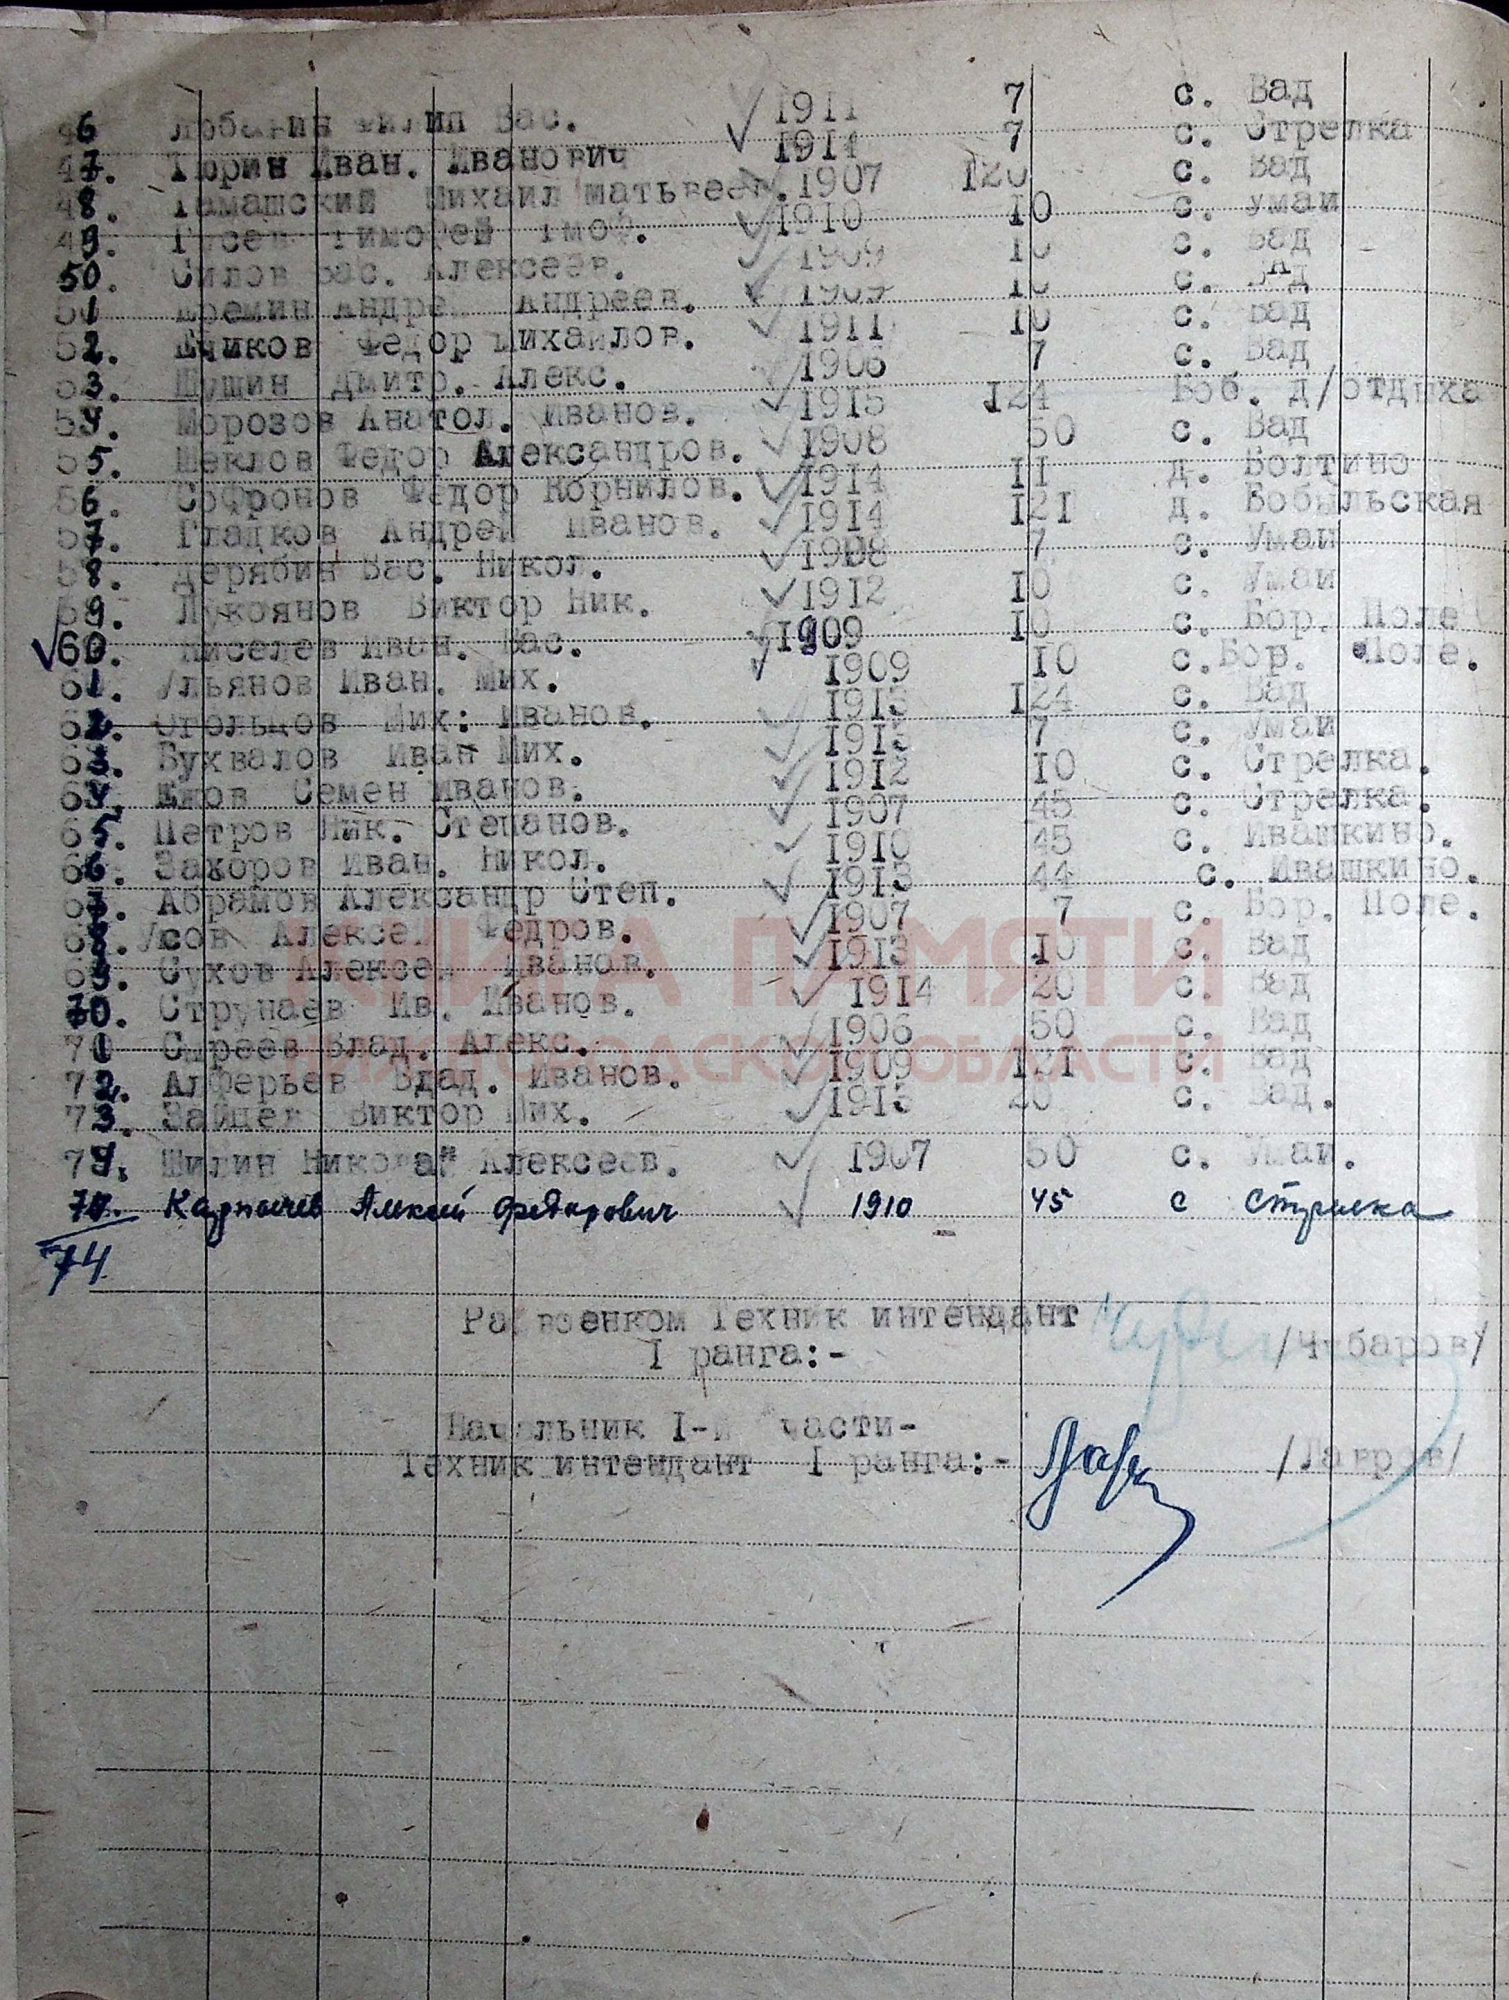 46 Лобанин Филип Вас. 1911 7 с. Вад
47. Тюрин Иван. Иванович 1914 7 с. Стрелка
48. Томашский Михаил Матьвеев. 1907 120 с. Вад
49. Гусев Тимофей Тмоф. 1910 10 с. Умаи
50. Силов Вас. Алексеев. 1909 10 с. Вад
51 Еремин Андрей Андреев. 1909 10 с. Вад
52. Федор Михаилов. 1911 10 с. Вад
53. Шушин Дмитр. Алекс. 1906 7 с. Вад
54. Морозов Анатол. Иванов. 1915 124 Боб. д/отдыха
55. Шеклов Федор Александров. 1908 50 с. Вад
56. Софронов Федор Корнилов. 1914 11 д. Болтино
57. Гладков Андрей Иванов. 1914 121 д. Бобыльская
58. Дерябин Вас. Никол. 1908 7 с. Умаи
59. Лукоянов Виктор Ник. 1912 10 с. Умаи
60. Киселев Иван. Вас. 1909 10 с. Бор. Поле
61. Ульянов Иван. Мих. 1909 10 с. Бор. Поле.
62. Стольцов Мих: Иванов. 124 с. Вад
63. Буквалов Иван Мих. 7 с. Умаи
64. Семен Иванов. 1912 10 с. Стрелка.
65. Петров Ник. Степанов. 1907 45 с. Стрелка.
66. Захоров Иван. Никол. 1910 45 с. Ивашкино.
67. Абрамов Александр Степ. 1913 44 с. Ивашкино.
68. Усов Алексей Федров. 1907 7 с. Бор. Поле.
69. Сухов Алексей Иванов. 1913 10 с. Вад
70. Струнаев Ив. Иванов. 1914 20 с. Вад
71 Сыреев Влад. Алекс. 1906 50 с. Вад
72. Алферьев Влад. Иванов. 1909 121 с. Вад
73. Зайцев Виктор Мих. 20 с. Вад.
74. Шилин Николай Алексеев. 1907 50 с. Умаи.
Алексей Федорович 1910 45 с Стрелка
74
Райвоенком Техник интендант
I ранга:- /Чубаров/
Начальник I-й части-
Техник интендант I ранга:- /Лавров/
КНИГА ПАМЯТИ
НИЖЕГОРОДСКОЙ ОБЛАСТИ